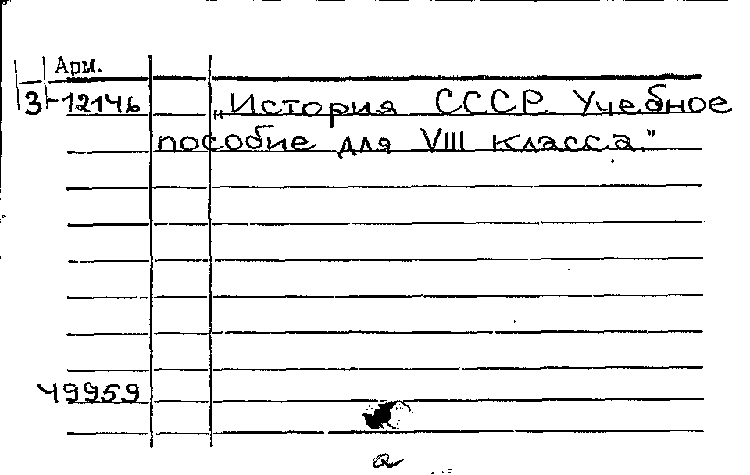 Арм.
3-12146 „История СССР Учебное
пособие для VIII класса."
49959
а